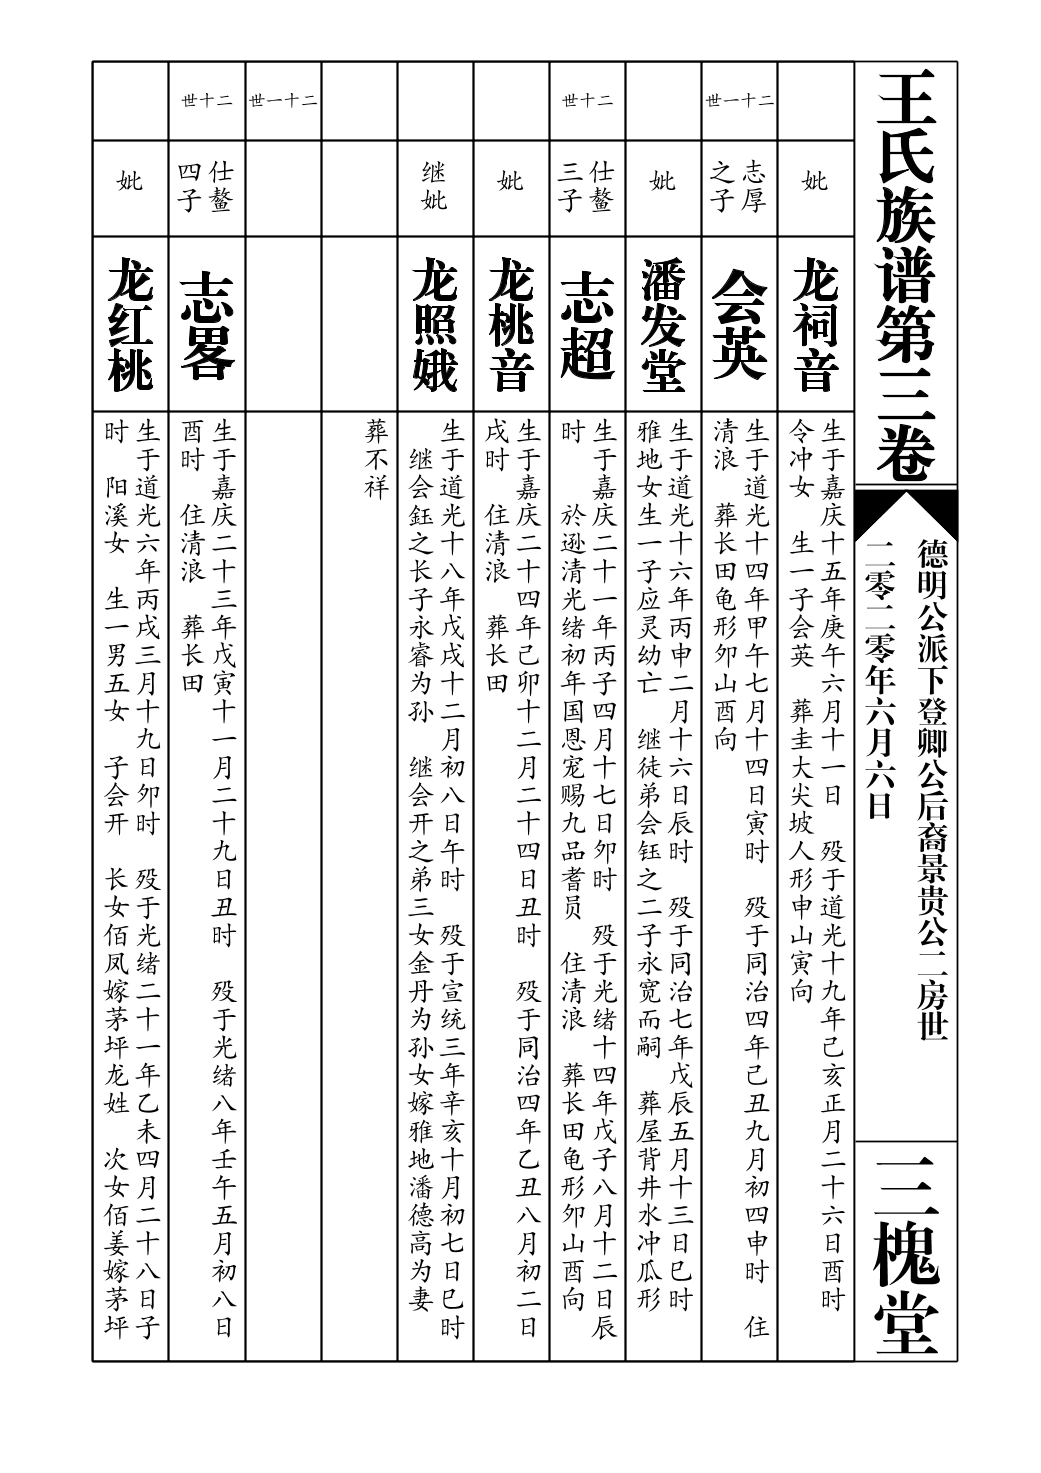 王氏族谱第三卷
德明公派下登卿公后裔景贵公二房世
二零二零年六月六日
三槐堂
妣
龙祠音
生于嘉庆十五年庚午六月十一日　殁于道光十九年己亥正月二十六日酉时
令冲女　生一子会英　葬圭大尖坡人形申山寅向
二十一世
志厚
之子
会英
生于道光十四年甲午七月十四日寅时　殁于同治四年己丑九月初四申时　住
清浪　葬长田龟形卯山酉向
妣
潘发堂
生于道光十六年丙申二月十六日辰时　殁于同治七年戊辰五月十三日巳时
雅地女生一子应灵幼亡　继徒弟会钰之二子永宽而嗣　葬屋背井水冲瓜形
二十世
仕鳌
三子
志超
生于嘉庆二十一年丙子四月十七日卯时　殁于光绪十四年戊子八月十二日辰
时　　於逊清光绪初年国恩宠赐九品耆员　住清浪　葬长田龟形卯山酉向
妣
龙桃音
生于嘉庆二十四年己卯十二月二十四日丑时　殁于同治四年乙丑八月初二日
戌时　住清浪　葬长田
继妣
龙照娥
生于道光十八年戊戌十二月初八日午时　殁于宣统三年辛亥十月初七日巳时
继会鈺之长子永睿为孙　继会开之弟三女金丹为孙女嫁雅地潘德高为妻
葬不祥
二十一世
二十世
仕鳌
四子
志畧
生于嘉庆二十三年戊寅十一月二十九日丑时　殁于光绪八年壬午五月初八日
酉时　住清浪　葬长田
妣
龙红桃
生于道光六年丙戌三月十九日卯时　殁于光绪二十一年乙未四月二十八日子
时　阳溪女　生一男五女　子会开　长女佰凤嫁茅坪龙姓　次女佰姜嫁茅坪